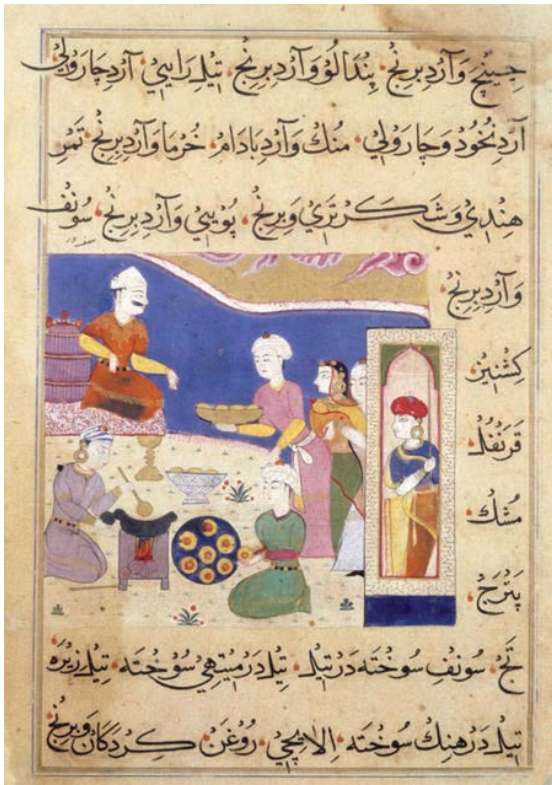 جينچ وآرد برنج، پندالو وآرد برنج، تيل رايي، آرد چارولي
آرد نخود وچارولي، منك وآرد بادام، خرما وآرد برنج، تمر
هندي وشكر تري وبرنج، پويي وآرد برنج، سونف
وآرد برنج،
كشنيز
قرنفل،
مشك
پترج،
تج، سونف سوخته در تيل، تيل در ميتهي سوخته، تيل زيره
تيل در هنك سوخته، الايچي، روغن كردكان وبرنج